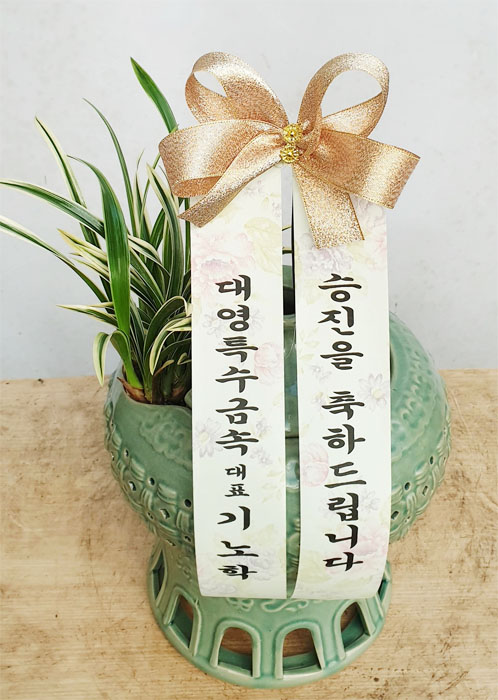 승진을 축하드립니다
대영특수금속 대표 기노학